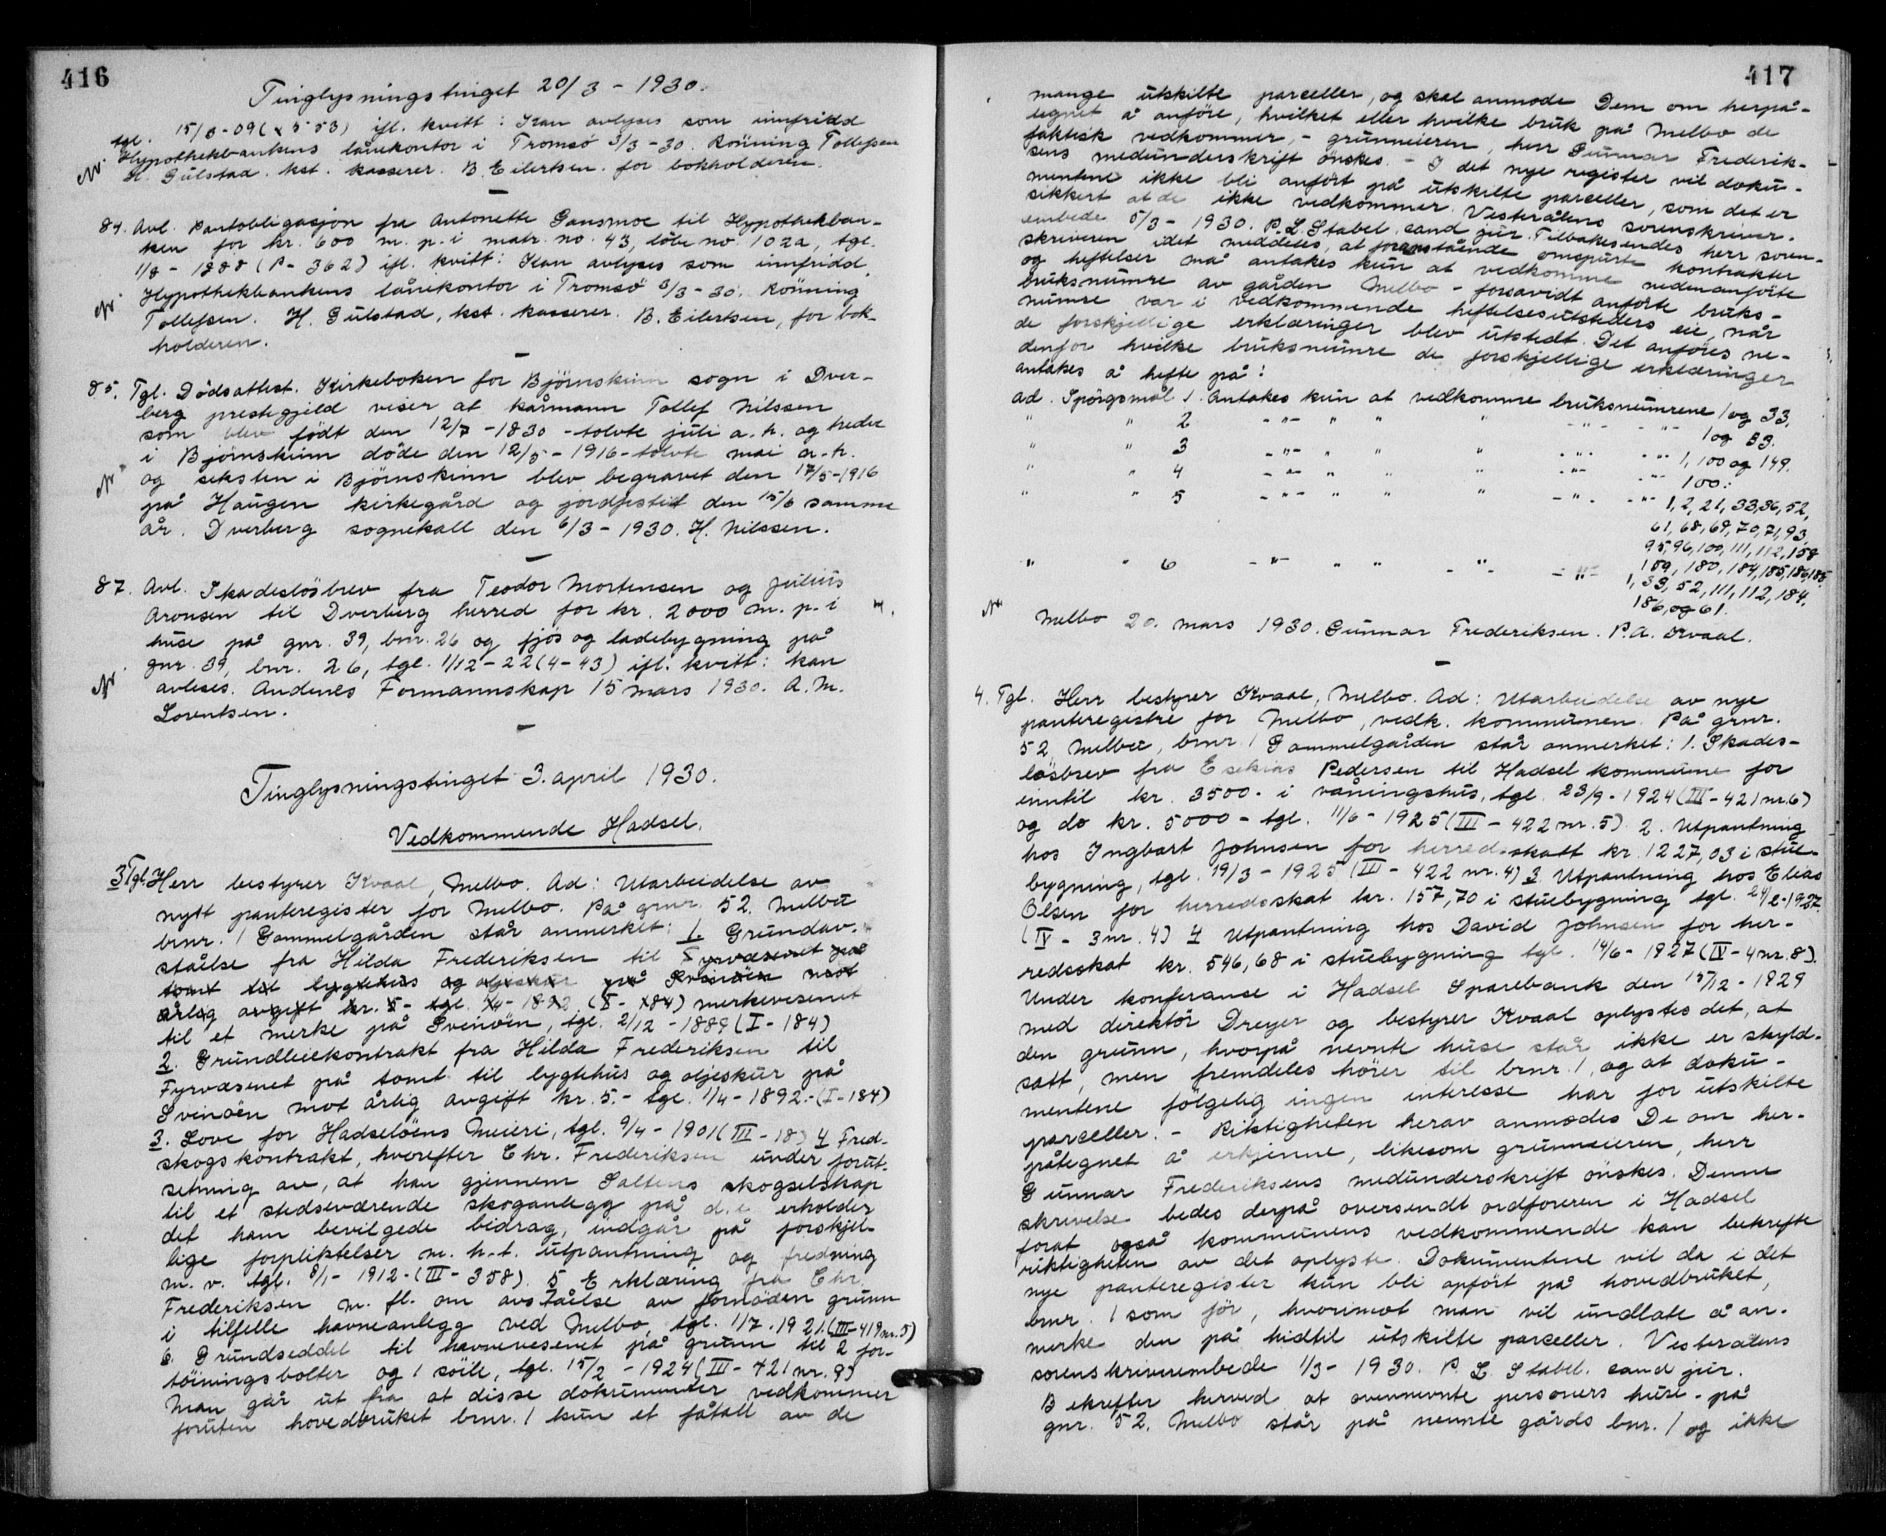 416
Tinglysningstinget 20/3 - 1930.
tgl. 15/6-09 (x 553) ifl. kvitt: Kan avlyses som innfridd
Hypothekbankens lånekontor i Tromsö 3/3-30. Rönning Tollefsen
H. Gulstad. kst. kasserer. B. Eilertsen. for bokholderen.
84. Avl. Pantobligasjon fra Antonette Gansmoe til Hypothekban-
ken for kr. 600 m. p. i matr. no. 43, löbe no. 102a, tgl.
1/8 - 1888 (P - 362) ifl. kvitt: Kan avlyses som innfridd.
Hypothekbankens lånekontor i Tromsö 3/3-30. Rönning
Tollefsen. H. Gulstad, kst. kasserer. B. Eilertsen, for bok-
holderen.
85. Tgl. Dödsattest. Kirkeboken for Björnskinn sogn i Dver-
berg prestegjeld viser at kårmann Tollef Nilssen
som blev födt den 12/7 - 1830 - tolvte juli a. h. og tredve
i Björnskinn döde den 12/5 - 1916 - tolvte mai a. h.
og seksten i Björnskinn blev begravet den 17/5-1916
på Haugen kirkegård og jordfestet den 15/6 samme
år. Dverberg sognekall den 6/3 - 1930. H. Nilssen.
87. Avl. Skadeslösbrev fra Teodor Mortensen og Julius
Aronsen til Dverberg herred for kr. 2000 m. p. i
huse på gnr. 39, bnr. 26 og fjös og ladebygning på
gnr. 39, bnr. 26, tgl. 1/12 - 22 (4-43) ifl. kvitt: kan
avleses. Andenes Formannskap 15 mars 1930. A. M.
Lorentsen.
Tinglysningstinget 3. april 1930.
Vedkommende Hadsel.
3 Tgl Herr bestyrer Kvaal, Melbo. Ad: Utarbeidelse av
nytt panteregister for Melbo. På grnr. 52. Melbu
brnr. 1 Gammelgården står anmerket: 1. Grundav-
ståelse fra Hilda Frederiksen til Fyrvæsenet på
tomt til lygtehus og oljeskur på Svinöen mot
årlig avgift kr. 5 - tgl. 1/4 - 1892 (I - 184) merkevesenet
til et merke på Svinöen, tgl. 2/12 - 1889 (I - 184)
2. Grundleiekontrakt fra Hilda Frederiksen til
Fyrvæsenet på tomt til lygtehus og oljeskur på
Svinöen mot årlig avgift kr. 5.- tgl. 1/4 - 1892.- (I-184)
3. Love for Hadselöens Meieri, tgl. 9/4 - 1901 (III - 18) 4 Fred-
skogskontrakt, hvorefter Chr. Frederiksen under forut-
setning av, at han gjennem Saltens skogselskap
til et stedsevärende skoganlegg på erholder
det ham bevilgede bidrag, indgår på forskjel-
lige forpliktelser m. h. t. utpantning og fredning
m. v. tgl. 8/1 - 1912 - (III - 358). 5 Erklæring fra Chr.
Frederiksen m. fl. om avståelse av fornöden grunn
i tilfelle havneanlegg ved Melbo, tgl. 1/7 - 1921. (III - 419 nr. 5)
6. Grundseddel til havnevesenet på grunn til 2 for-
töiningsbolter og 1 söile, tgl. 15/2 - 1924 (III - 421 nr. 9)
Man går ut fra at disse dokumenter vedkommer
foruten hovedbruket brnr. 1 kun et fåtall av de
417
mange utskilte parceller, og skal anmode Dem om herpå-
tegnet å anföre, hvilket eller hvilke bruk på Melbo de
faktisk vedkommer, - grunneieren, herr Gunnar Frederik-
sens medunderskrift önskes. - I det nye register vil doku-
mentene ikke bli anfört på utskilte parceller, som det er
sikkert at de ikke vedkommer. Vesterålens sorenskriver-
embede 5/3 - 1930. P. L. Stabel. cand jur. Tilbakesendes herr soren-
skriveren idet meddeles, at foranstående omspurte kontrakter
og heftelser må antakes kun at vedkomme nedenanförte
bruksnumre av gården Melbo - forsavidt anförte bruks-
numre var i vedkommende heftelsesutsteders eie, når
de forskjellige erklæringer blev utstedt. Det anföres ne-
denfor hvilke bruksnumre de forskjellige erklæringer
antakes å hefte på:
ad. Spörgsmål 1. Antakes kun at vedkomme bruksnumrene 1 og 33.
" " 2 - " - " " " - " - - " - 1 og 33.
" " 3 - " - " " " - " - - " - 1, 100 og 149.
" " 4 - " - " " " - " - - " - 100.
" " 5 - " - " " " - " - - " - 1, 2, 21, 33, 36, 52,
61, 68, 69, 70, 71, 93,
95, 96, 100, 111, 112, 158
159, 180, 184, 185, 186, 185
" " 6 - " - " " " - " - - " - 1, 33, 52, 111, 112, 184,
186, og 61.
Melbo 20. mars 1930. Gunnar Frederiksen. P.A. Kvaal.
4. Tgl. Herr bestyrer Kvaal, Melbo. Ad: Utarbeidelse av nye
panteregistre for Melbo, vedk. kommunen. På grnr.
52 Melbu, brnr. 1 Gammelgården står anmerket: 1. Skades-
lösbrev fra Esekias Pedersen til Hadsel kommune for
inntil kr. 3500.- i våningshus, tgl. 23/9 - 1924 (III - 421 nr. 6)
og do kr. 5000 - tgl. 11/6 - 1925 (III - 422 nr. 5). 2. Utpantning
hos Ingbart Johnsen for herredsskatt kr. 1227,03 i stue-
bygning, tgl. 19/3 - 1925 (III - 422 nr. 4) 3. Utpantning hos Elias
Olsen for herredsskat kr. 157,70 i stuebygning tgl. 24/2-1927.
(IV - 3 nr. 4) 4 Utpantning hos David Johnsen for her-
redsskat kr. 546,68 i stuebygning tgl. 14/6 - 1927 (IV - 4 nr. 8).
Under konferanse i Hadsel Sparebank den 15/12 - 1929
med direktör Dreyer og bestyrer Kvaal oplystes det, at
den grunn, hvorpå nevnte huse står ikke er skyld-
satt, men fremdeles hörer til brnr. 1, og at doku-
mentene fölgelig ingen interesse har for utskilte
parceller. - Riktigheten herav anmodes De om her-
påtegnet å erkjenne, likesom grunneieren, herr
Gunnar Frederiksens medunderskrift önskes. Denne
skrivelse bedes derpå oversendt ordföreren i Hadsel
forat også kommunens vedkommende kan bekrefte
riktigheten av det oplyste. Dokumentene vil da i det
nye panteregister kun bli opfört på hovedbruket,
bnr. 1 som för, hvorimot man vil undlate å an-
merke den på hidtil utskilte parceller. Vesterålens
sorenskriverembede 1/3 - 1930. P. L. Stabel. cand jur.
Bekrefter herved at ovennevnte personers huse - på
gnr. 52, Melbo står på nevnte gårds bnr. 1 og ikke